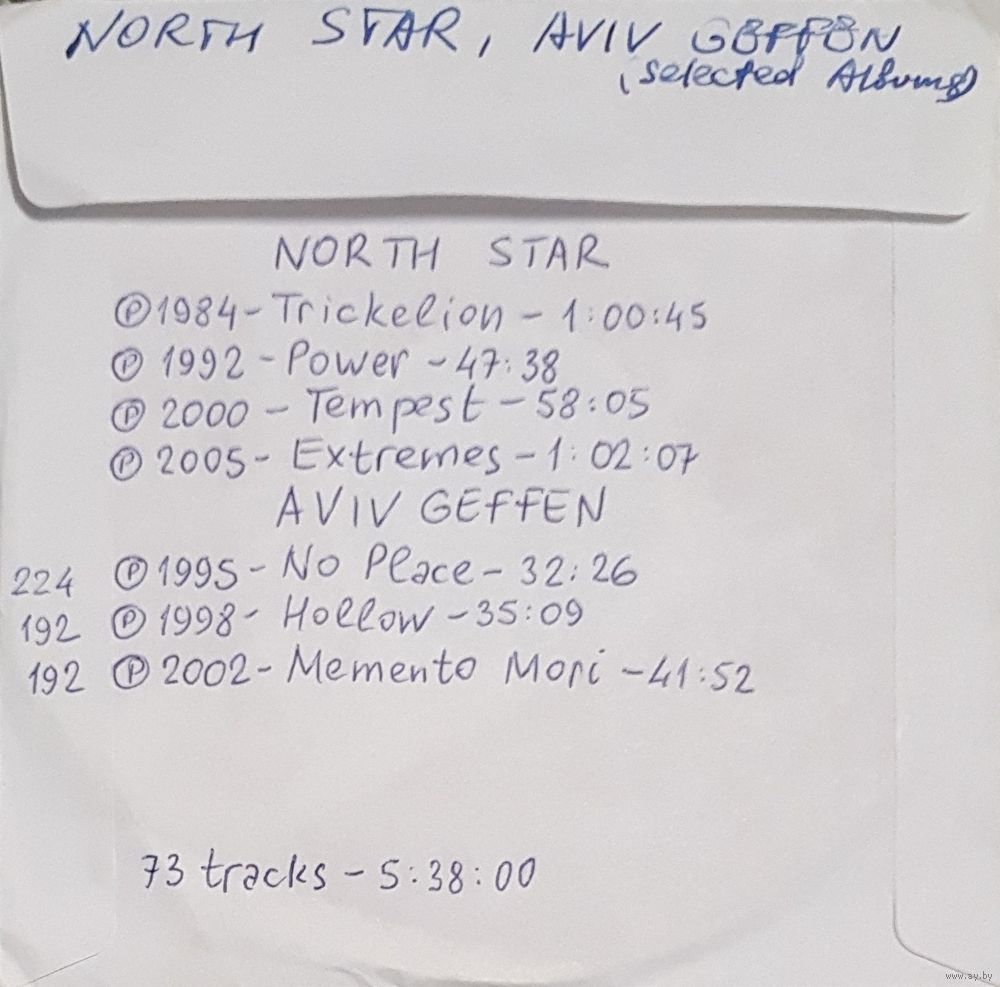 NORTH STAR, AVIV GEFFEN
(selected Albums)
NORTH STAR
Ⓟ 1984 - Trickelion - 1:00:45
Ⓟ 1992 - Power - 47:38
Ⓟ 2000 - Tempest - 58:05
Ⓟ 2005 - Extremes - 1:02:07
AVIV GEFFEN
224 Ⓟ 1995 - No Place - 32:26
192 Ⓟ 1998 - Hollow - 35:09
192 Ⓟ 2002 - Memento Mori - 41:52
73 tracks - 5:38:00
www.ay.by